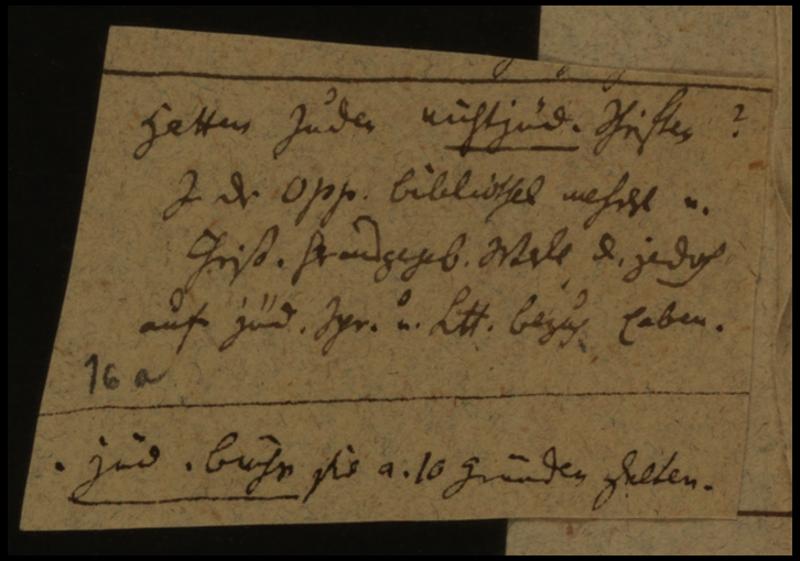 Hatten Juden nichtjüd. Schriften ?
In der Opp. bibliothek mehrere v.
Christ. herausgegeb. Werke, d. jedoch
auf jüd. Spr. u. Litt. bezug haben.
16 a
. jüd . bücher sie a. 10 Gründen halten.